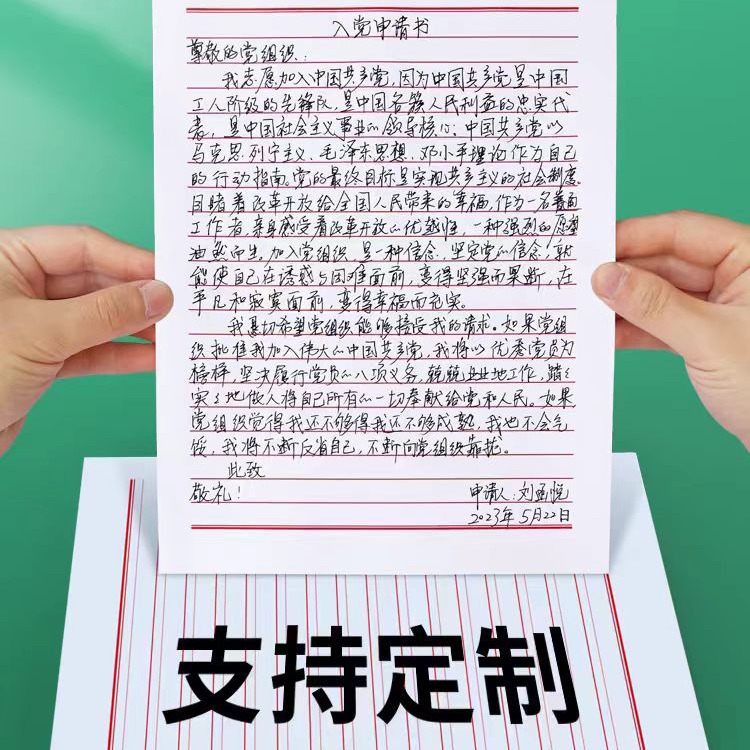 入党申请书
尊敬的党组织：
我志愿加入中国共产党，因为中国共产党是中国
工人阶级的先锋队，是中国各族人民利益的忠实代
表，是中国社会主义事业的领导核心。中国共产党以
马克思列宁主义、毛泽东思想、邓小平理论作为自己
的行动指南。党的最终目标是实现共产主义的社会制度
目睹着改革开放给全国人民带来的幸福，作为一名普通
工作者，亲身感受着改革开放的优越性，一种强烈的愿望
油然而生。加入党组织是一种信念，坚定党的信念，就
能使自己在诱惑与困难面前，变得坚强而果断，在
平凡和寂寞面前，变得幸福而充实。
我恳切希望党组织能够接受我的请求。如果党组
织批准我加入伟大的中国共产党，我将以优秀党员为
榜样，坚决履行党员的八项义务，兢兢业业地工作，踏踏
实实地做人将自己所有的一切奉献给党和人民。如果
党组织觉得我还不够得我还不够成熟，我也不会气
馁，我将不断反省自己，不断向党组织靠拢。
此致
敬礼！
申请人：刘函悦
2023年5月22日
支持定制